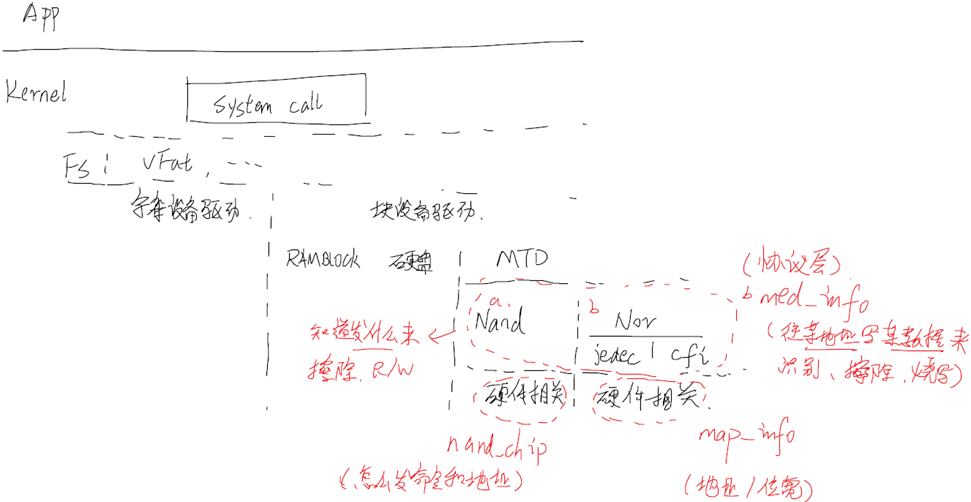 App
Kernel
System call
Fs: vFat, ...
字符设备驱动. 块设备驱动.
RAMBLOCK 硬盘 MTD
(协议层)
a. b b med_info
Nand Nor
知道发什么来 (往某地址写某数据来
擦除. R/W jedec | cfi 识别、擦除、烧写)
硬件相关 硬件相关.
nand_chip map_info
(怎么发命令和地址) (地址/位宽)